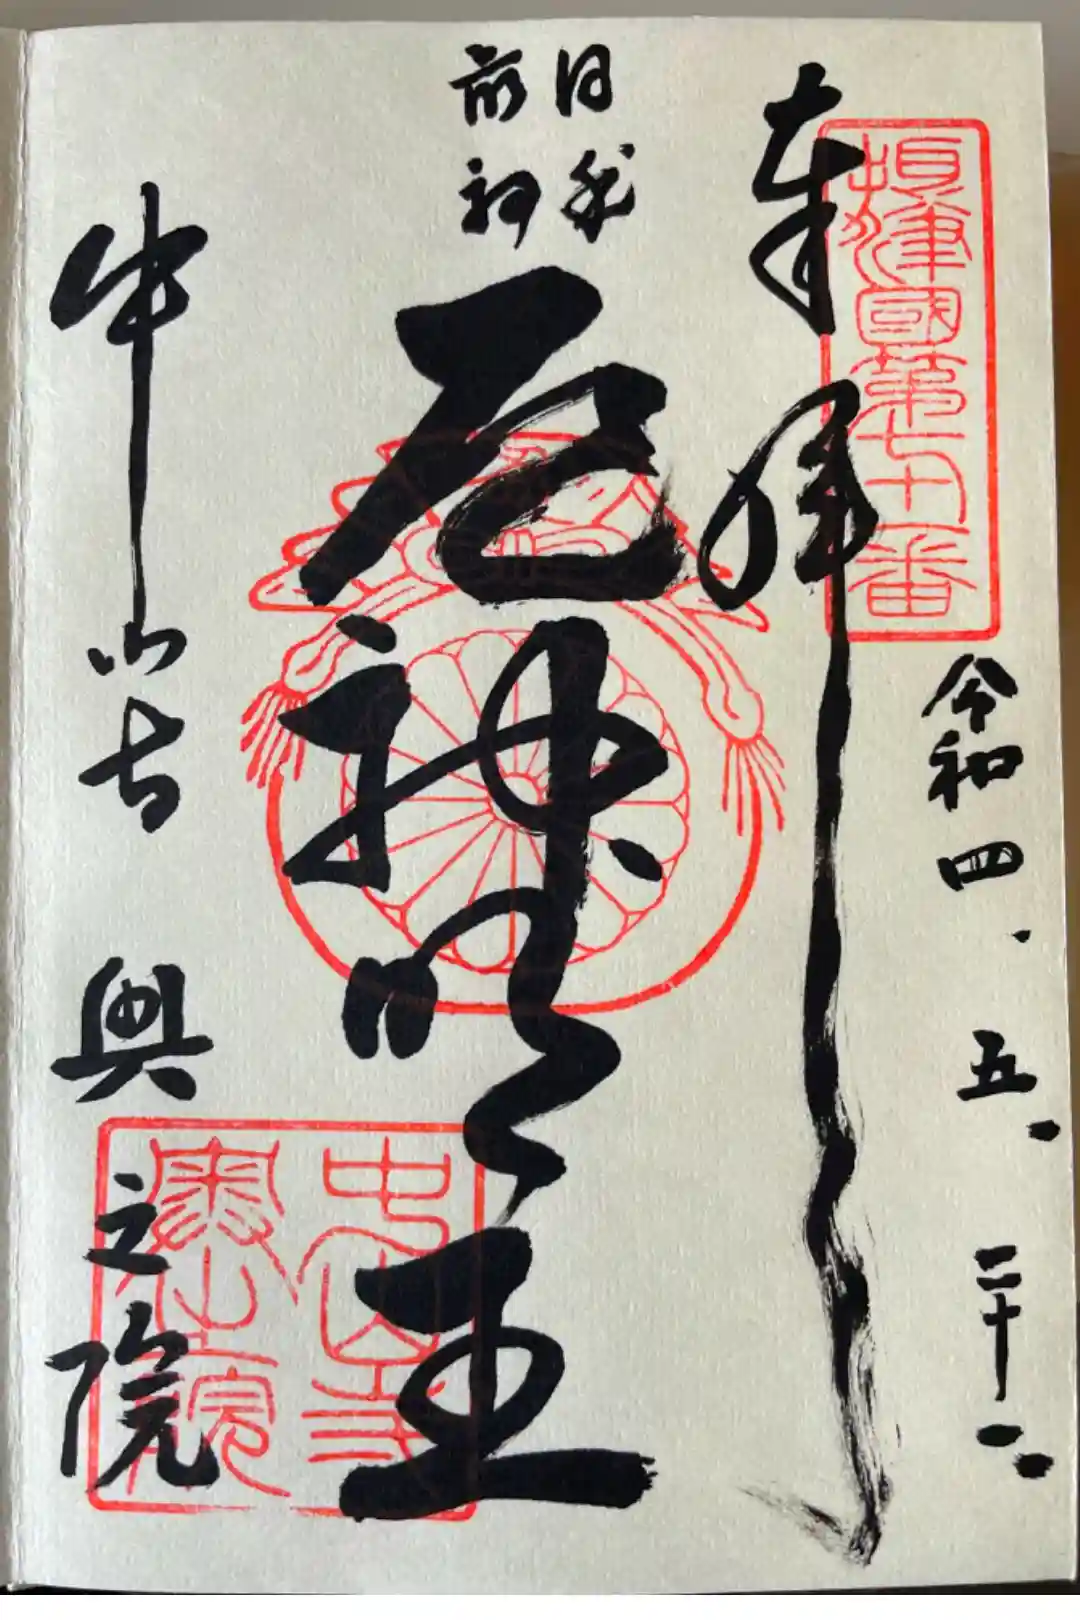 奉拝
摂津國第七十番
令和四.五.二十一.
厄神明王
中山寺 奥之院
中山寺
奥之院